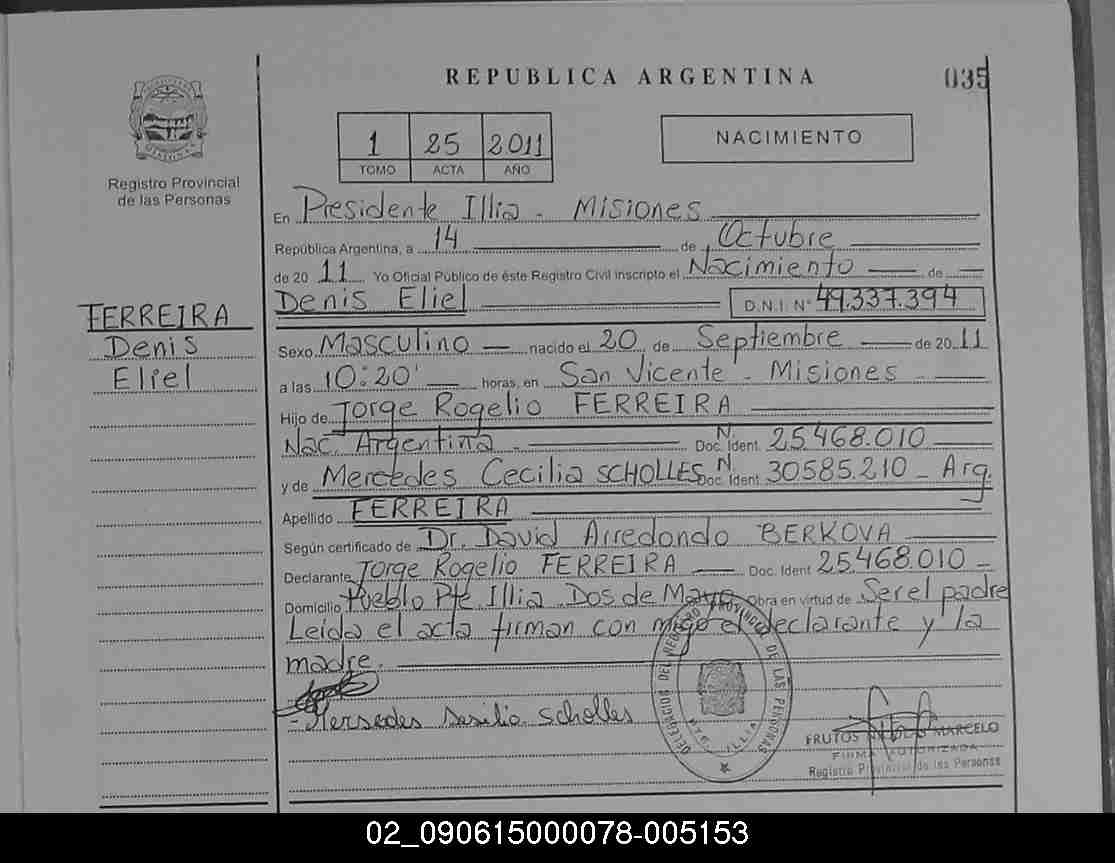 REPUBLICA ARGENTINA
035
1 25 2011
TOMO ACTA AÑO
NACIMIENTO
Registro Provincial
de las Personas
En Presidente Illia - Misiones
República Argentina, a 14 de Octubre
de 20 11 Yo Oficial Público de éste Registro Civil inscripto el Nacimiento de
Denis Eliel D.N.I. N° 49.337.394
FERREIRA
Denis
Eliel
Sexo Masculino nacido el 20 de Septiembre de 20 11
a las 10:20' horas, en San Vicente - Misiones
Hijo de Jorge Rogelio FERREIRA
Nac. Argentina - Doc. Ident. N° 25.468.010
y de Mercedes Cecilia SCHOLLES Doc. Ident. N° 30.585.210 - Arg.
Apellido FERREIRA
Según certificado de Dr. David Arredondo BERKOVA
Declarante Jorge Rogelio FERREIRA Doc. Ident 25.468.010
Domicilio Pueblo Pte. Illia Dos de Mayo Obra en virtud de Ser el padre
Leída el acta firman con migo el declarante y la
madre.
Mersedes Sesilia Scholles
DELEGACION DEL REGISTRO PROVINCIAL DE LAS PERSONAS
PTE. ILLIA
FRUTOS MARCELO
FIRMA AUTORIZADA
Registro Provincial de las Personas
02_090615000078-005153